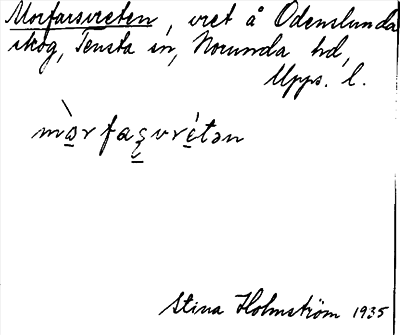 Morfarsvreten, vret å Odenslunda
skog, Tensta sn, Norunda hd,
Upps. l.
mὰrfaʂvrétən
Stina Holmström 1935